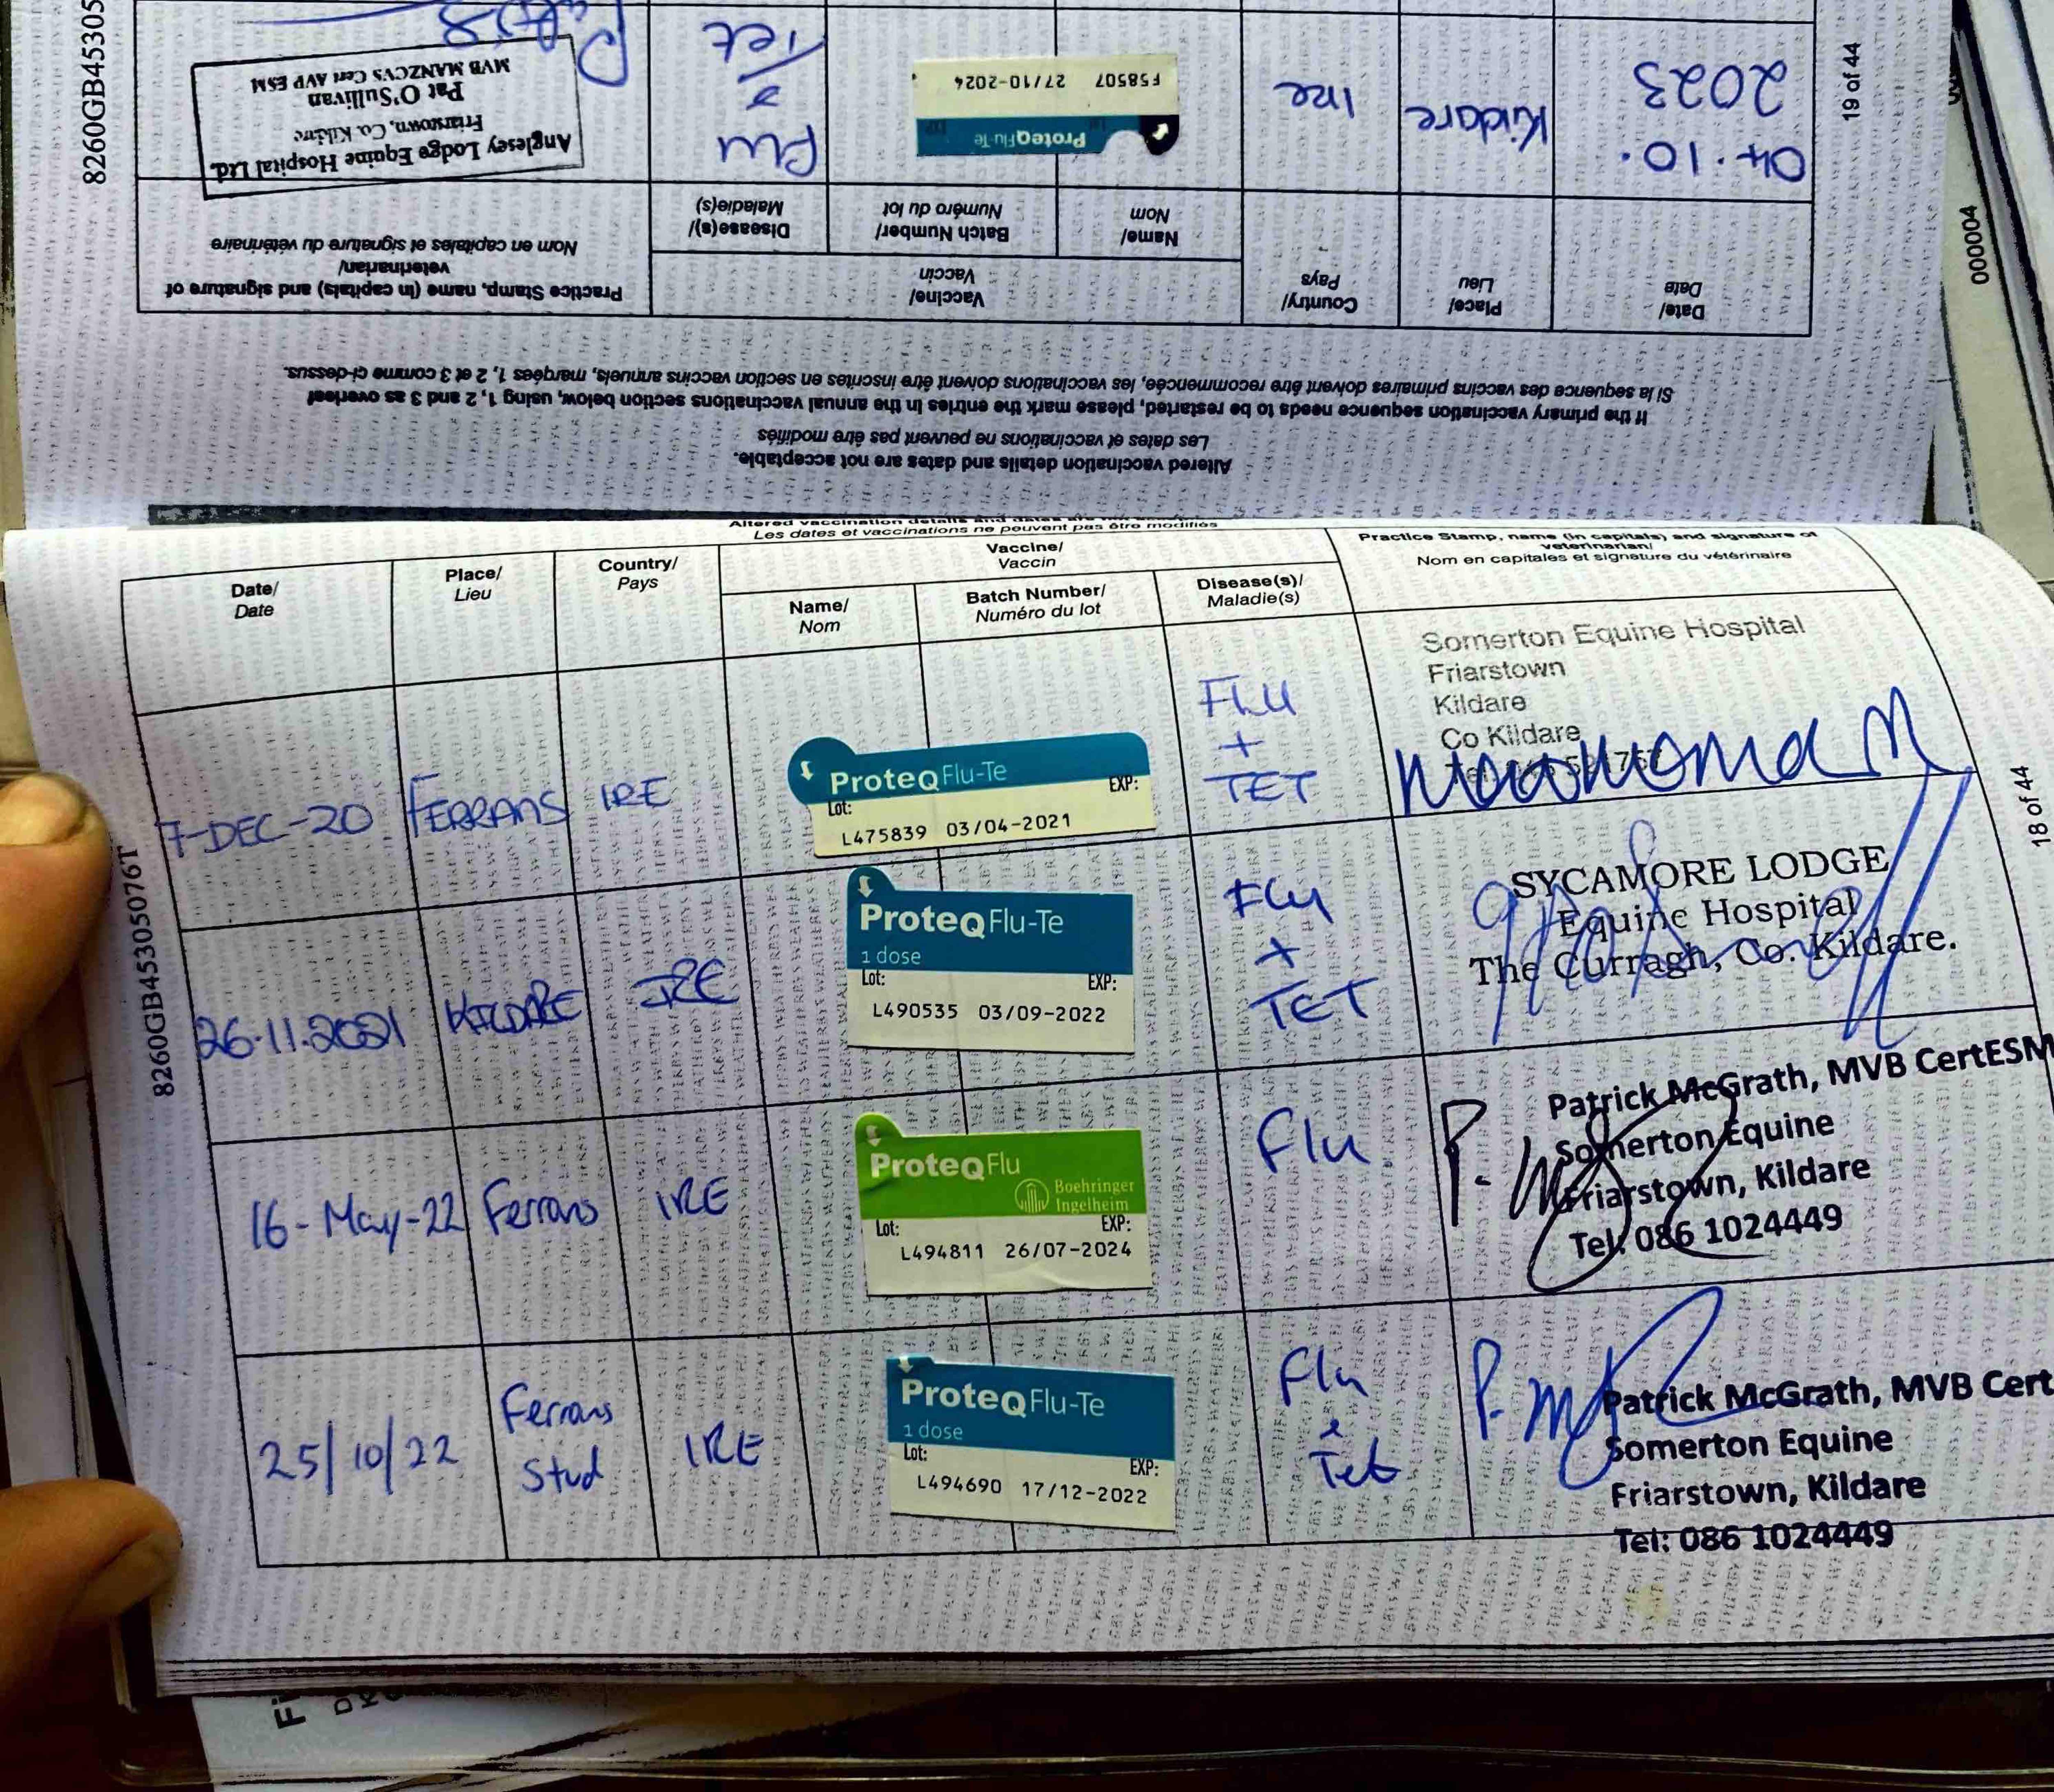 8260GB45305
19 of 44
000004
Altered vaccination details and dates are not acceptable.
Les dates et vaccinations ne peuvent pas être modifiés
If the primary vaccination sequence needs to be restarted, please mark the entries in the annual vaccinations section below, using 1, 2 and 3 as overleaf
Si la sequence des vaccins primaires doivent être recommencée, les vaccinations doivent être inscrites en section vaccins annuels, marqées 1, 2 et 3 comme ci-dessus.
Date/
Date
Place/
Lieu
Country/
Pays
Vaccine/
Vaccin
Name/
Nom
Batch Number/
Numéro du lot
Disease(s)/
Maladie(s)
Practice Stamp, name (in capitals) and signature of
veterinarian/
Nom en capitales et signature du vétérinaire
04.10.
2023
Kildare
Ire
ProteqFlu-Te
F58507 27/10-2024
Flu
&
Tet
Anglesey Lodge Equine Hospital Ltd.
Friarstown, Co. Kildare
Pat O'Sullivan
MVB MANZCVS Cert AVP ESM
Altered vaccination details and dates are not acceptable
Les dates et vaccinations ne peuvent pas être modifiés
Date/
Date
Place/
Lieu
Country/
Pays
Vaccine/
Vaccin
Name/
Nom
Batch Number/
Numéro du lot
Disease(s)/
Maladie(s)
Practice Stamp, name (in capitals) and signature of
veterinarian/
Nom en capitales et signature du vétérinaire
7-DEC-20
FERRANS
IRE
ProteqFlu-Te
Lot: EXP:
L475839 03/04-2021
FLU
+
TET
Somerton Equine Hospital
Friarstown
Kildare
Co Kildare
26.11.2021
KILDARE
IRE
ProteqFlu-Te
1 dose
Lot: EXP:
L490535 03/09-2022
Flu
+
TET
SYCAMORE LODGE
Equine Hospital
The Curragh, Co. Kildare.
16-May-22
Ferrans
IRE
ProteqFlu
Boehringer
Ingelheim
Lot: EXP:
L494811 26/07-2024
Flu
Patrick McGrath, MVB CertESM
Somerton Equine
Friarstown, Kildare
Tel: 086 1024449
25/10/22
Ferrans
Stud
IRE
ProteqFlu-Te
1 dose
Lot: EXP:
L494690 17/12-2022
Flu
&
Tet
Patrick McGrath, MVB Cert
Somerton Equine
Friarstown, Kildare
Tel: 086 1024449
8260GB45305076T
18 of 44